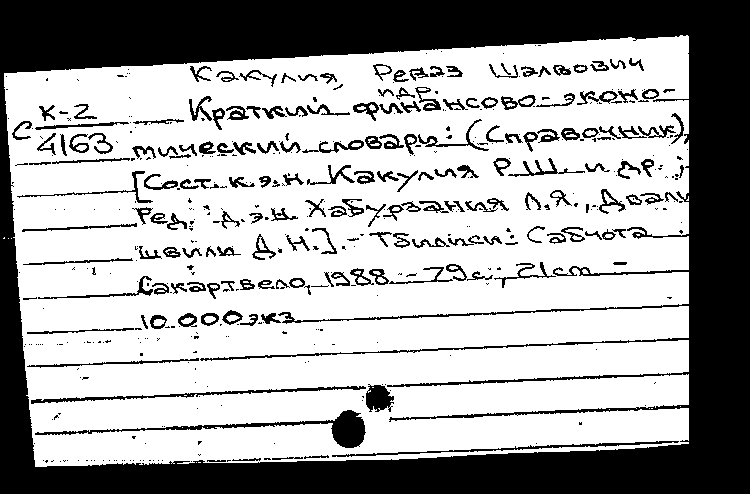 Какулия, Реваз Шалвович
и др.
К-2
С 4163
Краткий финансово-эконо-
мический словарь: (Справочник),
[Сост. к.э.н. Какулия Р.Ш. и др.;
Ред.: д.э.н. Хабурзания Л.Я., Двали
швили Д.Н.].- Тбилиси: Сабчота
Сакартвело, 1988 - 79с.; 21cm -
10 000 экз